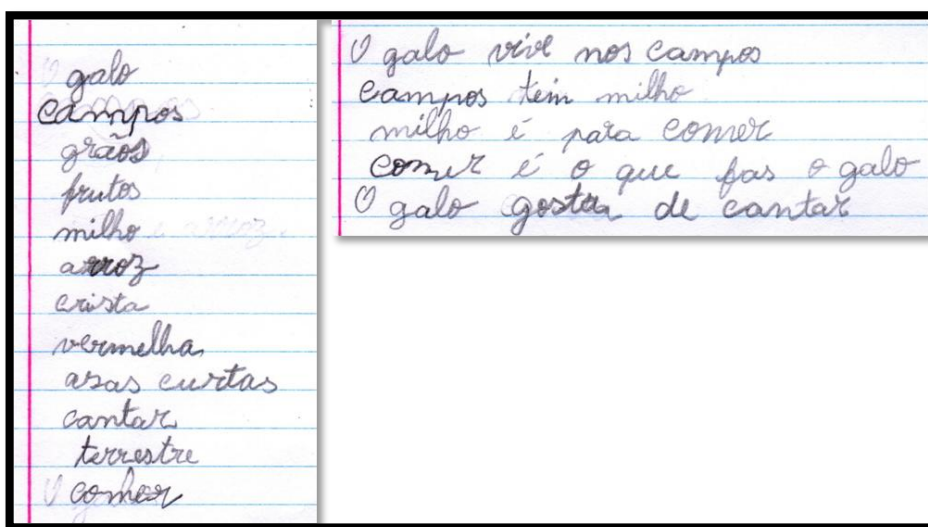 O galo
campos
grãos
frutos
milho
arroz
crista
vermelha
asas curtas
cantar
terrestre
comer
O galo vive nos campos
campos tem milho
milho é para comer
comer é o que fas o galo
O galo gosta de cantar